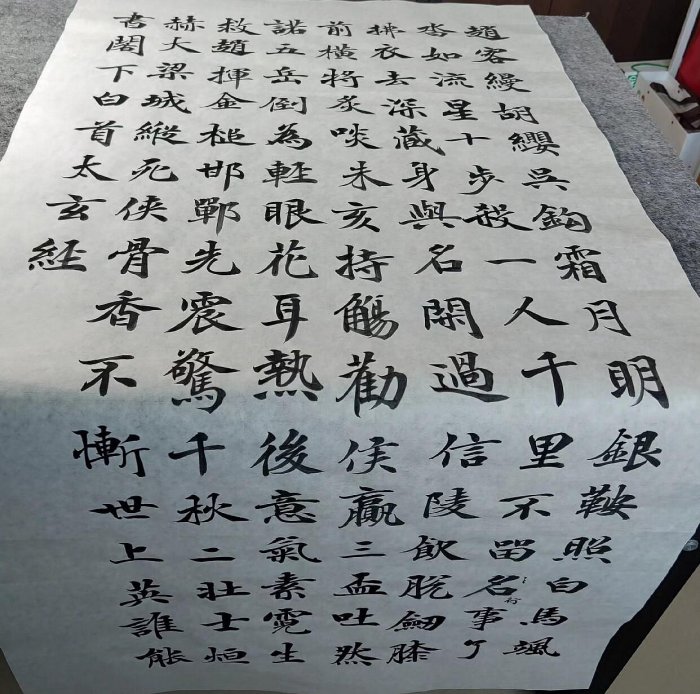 趙客縵胡纓吳鈎霜月明銀鞍照白馬颯
沓如流星十步殺一人千里不留名事了
行
拂衣去深藏身與名閑過信陵飲脫劒膝
前橫將炙啖朱亥持觴勸侯嬴三盃吐然
諾五岳倒為輕眼花耳熱後意氣素霓生
救趙揮金槌邯鄲先震驚千秋二壯士烜
赫大梁城縱死俠骨香不慚世上英誰能
書閣下白首太玄經